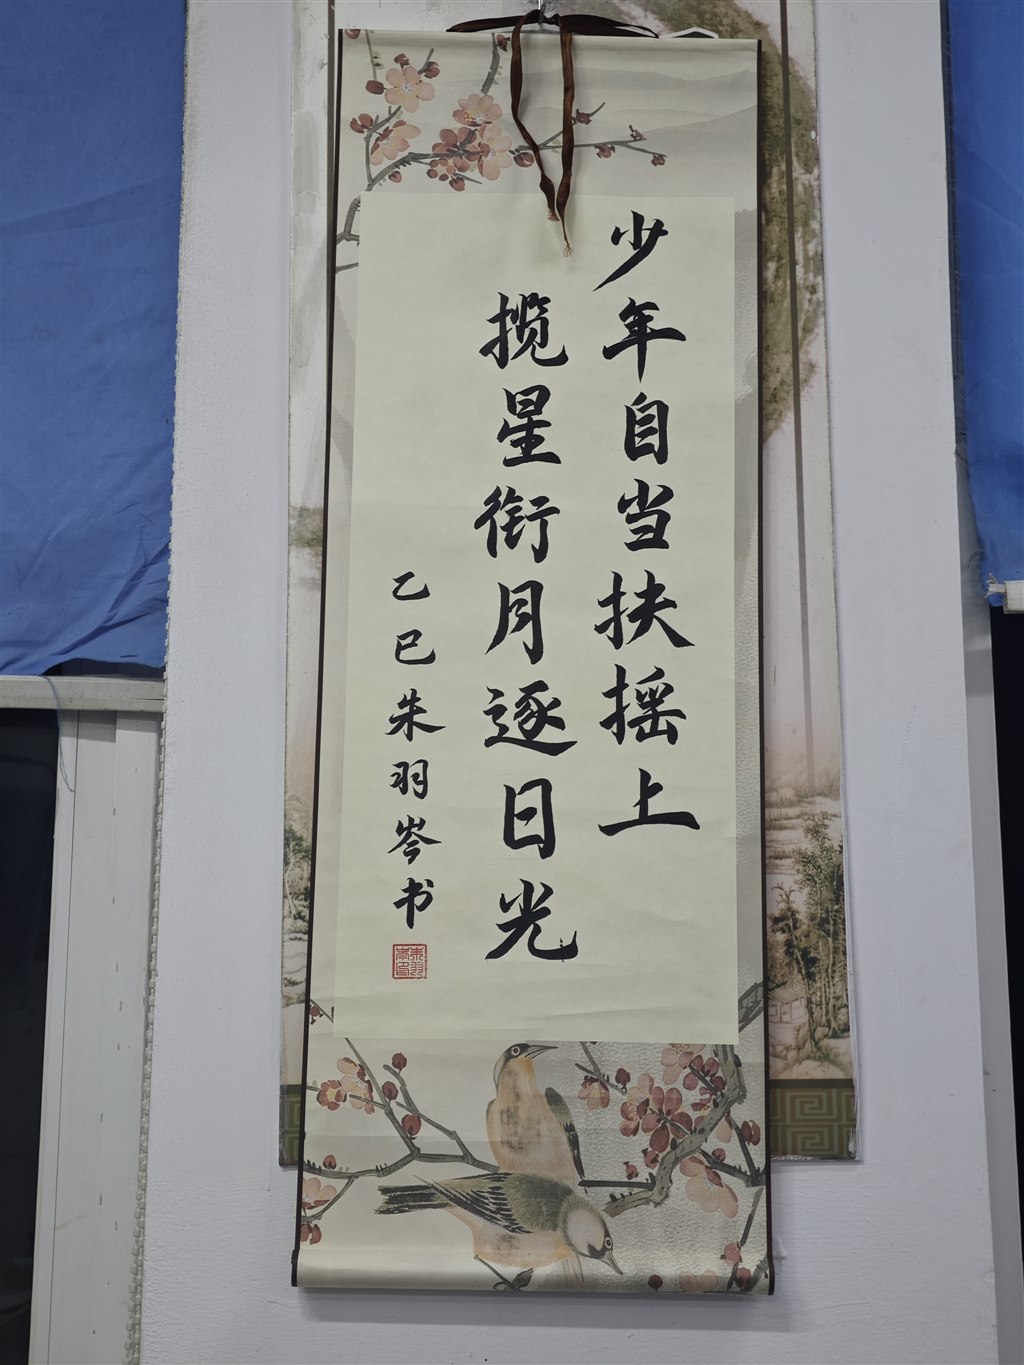 少年自当扶摇上
揽星衔月逐日光
乙巳朱羽岑书